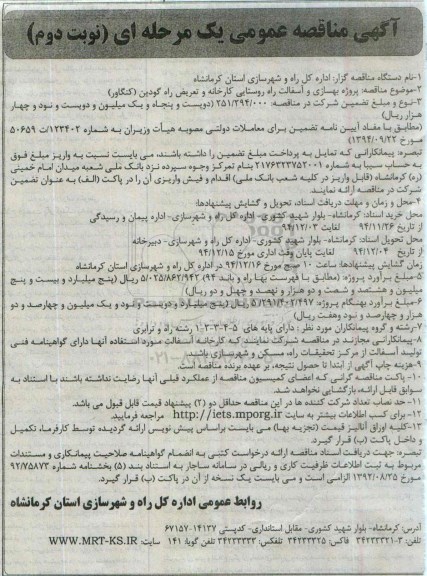 آگهی مناقصه عمومی یک مرحله ای (نوبت دوم)
۱-نام دستگاه مناقصه گزار: اداره کل راه و شهرسازی استان کرمانشاه
۲-موضوع مناقصه: پروژه بهسازی و آسفالت راه روستایی کارخانه و تعریض راه گودین (کنگاور)
۳-نوع و مبلغ تضمین شرکت در مناقصه: ۲۵۱/۲۹۴/۰۰۰ (دویست و پنجاه و یک میلیون و دویست و نود و چهار
هزار ریال)
(مطابق با مفاد آیین نامه تضمین برای معاملات دولتی مصوبه هیأت وزیران به شماره ۱۲۳۴۰۲/ت ۵۰۶۵۹
مورخ ۱۳۹۴/۰۹/۲۲)
تبصره: پیمانکارانی که تمایل به پرداخت مبلغ تضمین را داشته باشند، می بایست نسبت به واریز مبلغ فوق
به حساب سیبا به شماره ۲۱۷۶۴۳۲۳۷۵۲۰۰۱ بنام تمرکز وجوه سپرده نزد بانک ملی شعبه میدان امام خمینی
(ره) کرمانشاه (قابل واریز در کلیه شعب بانک ملی) اقدام و فیش واریزی آن را در پاکت (الف) به عنوان تضمین
شرکت در مناقصه ارائه نمایند.
۴-محل و زمان و مهلت دریافت اسناد، تحویل و گشایش پیشنهادها:
محل خرید اسناد: کرمانشاه- بلوار شهید کشوری- اداره کل راه و شهرسازی- اداره پیمان و رسیدگی
از تاریخ ۹۴/۱۱/۲۶ لغایت ۹۴/۱۲/۰۳
محل تحویل اسناد: کرمانشاه- بلوار شهید کشوری- اداره کل راه و شهرسازی- دبیرخانه
از تاریخ ۹۴/۱۲/۰۴ لغایت پایان وقت اداری مورخ ۹۴/۱۲/۱۵
زمان گشایش پیشنهادها: ساعت ۱۰ صبح مورخ ۹۴/۱۲/۱۶ در اداره کل راه و شهرسازی استان کرمانشاه
۵-مبلغ برآورد پروژه: (مطابق با فهرست بها راه و باند ۹۴): ۵/۰۲۵/۸۶۲/۹۴۲ ریال (پنج میلیارد و بیست و پنج
میلیون و هشتصد و شصت و دو هزار و نهصد و چهل و دو ریال)
۶-مبلغ برآورد بهنگام پروژه: ۵/۲۹۱/۴۰۲/۴۹۷ ریال (پنج میلیارد و دویست و نود و یک میلیون و چهارصد و دو
هزار و چهارصد و نود وهفت ریال)
۷-رشته و گروه پیمانکاران مورد نظر: دارای پایه های ۵-۴-۳-۲-۱ رشته راه و ترابری
۸-پیمانکارانی مجازند در مناقصه شرکت نمایند که کارخانه آسفالت مورد استفاده آنها دارای گواهینامه فنی
تولید آسفالت از مرکز تحقیقات راه، مسکن و شهرسازی باشند.
۹-هزینه چاپ آگهی از ابتدا تا حصول نتیجه، بر عهده برنده مناقصه است.
۱۰- پاکت مناقصه گرانی که اعضای کمیسیون مناقصه از عملکرد قبلی آنها رضایت نداشته باشند با استناد به
سوابق قابل ارائه، بازگشایی نخواهد شد.
۱۱- حد نصاب تعداد شرکت کننده ها در این مناقصه حداقل دو (۲) پیشنهاد قیمت قابل قبول می باشد.
۱۲-برای کسب اطلاعات بیشتر به سایت http://iets.mporg.ir مراجعه فرمایید.
۱۳-کلیه اوراق آنالیز قیمت (تجزیه بها) می بایست براساس پیش نویس ارائه گردیده توسط کارفرما، تکمیل
و داخل پاکت (ب) قرار گیرد.
تبصره: جهت دریافت اسناد مناقصه ارائه درخواست کتبی به انضمام گواهینامه صلاحیت پیمانکاری و مستندات
مربوط به ثبت اطلاعات ظرفیت کاری و ریالی در سامانه ساجار به استناد بند (۵) بخشنامه شماره ۹۲/۷۵۸۷۳
مورخ ۱۳۹۲/۰۸/۲۵ الزامی است و می بایست یک نسخه از آن در پاکت (ب) قرار گیرد.
روابط عمومی اداره کل راه و شهرسازی استان کرمانشاه
آدرس: کرمانشاه- بلوار شهید کشوری- مقابل استانداری- کدپستی ۱۴۱۳۷-۶۷۱۵۷
تلفن: ۳-۳۴۲۳۳۲۱ فاکس: ۳۴۲۳۳۳۲۵ تلفکس: ۳۴۲۳۳۳۳۳ تلفن گویا: ۱۴۱ سایت: WWW.MRT-KS.IR